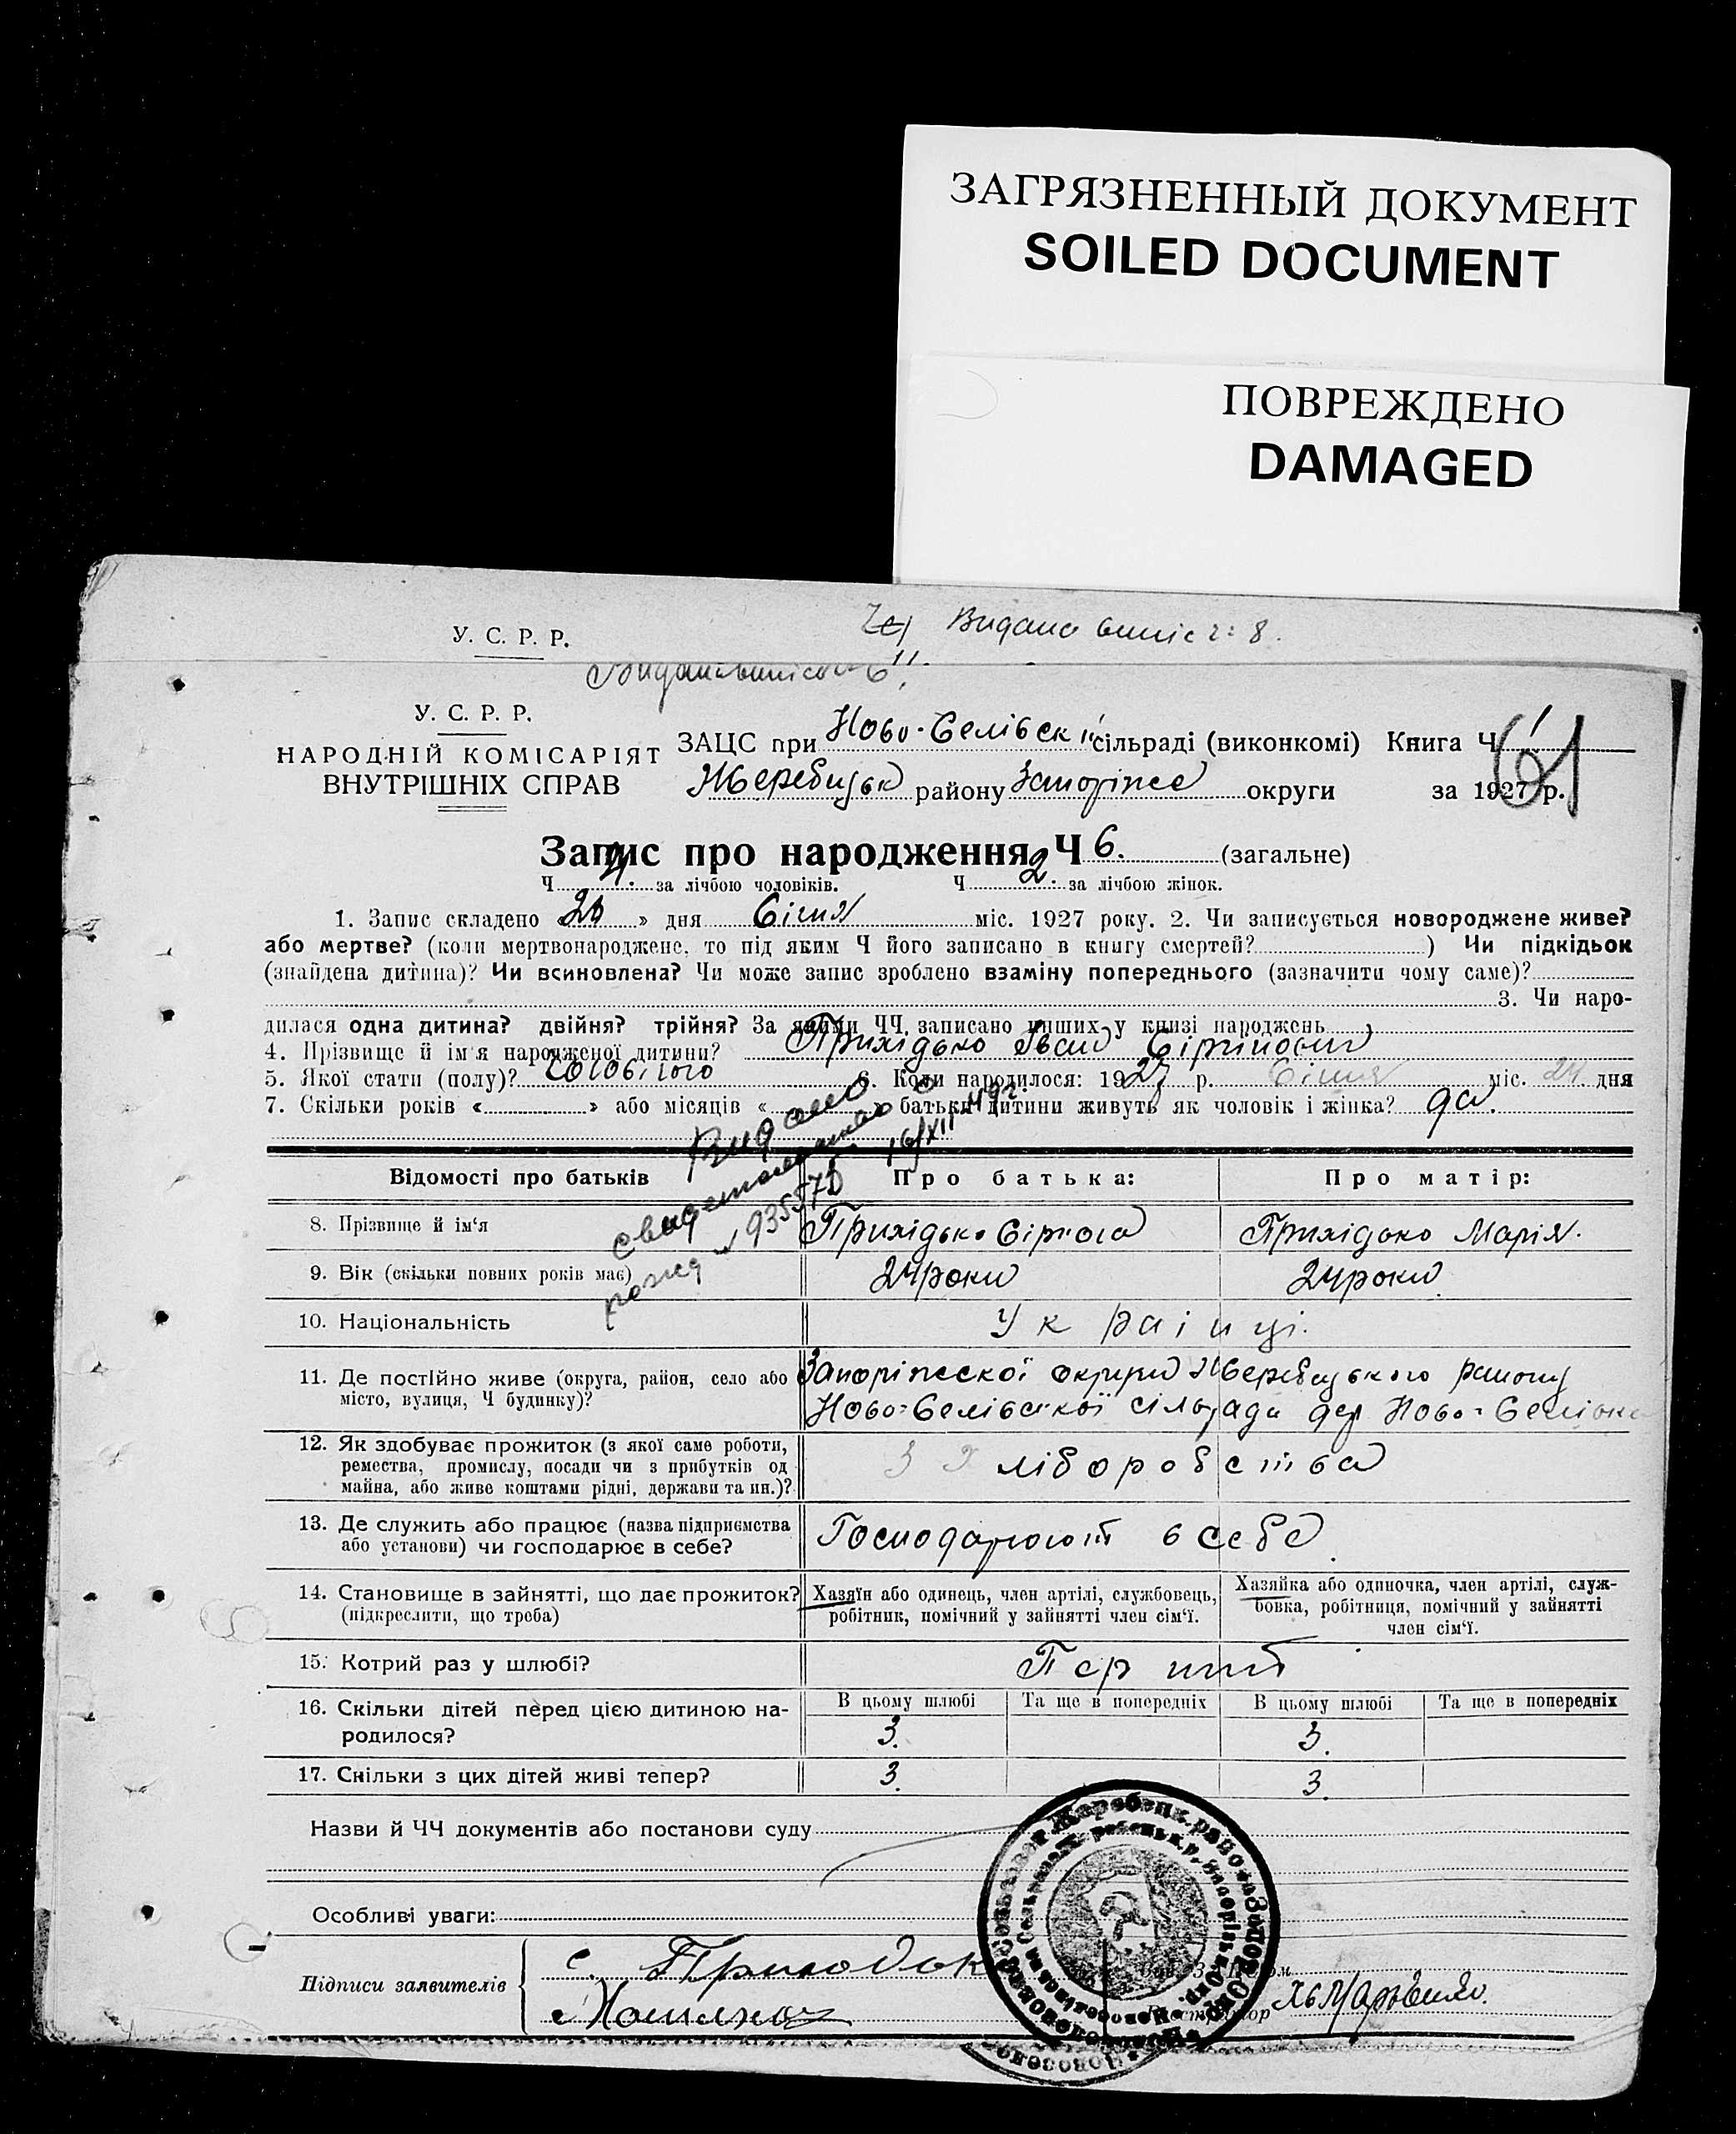 ЗАГРЯЗНЕННЫЙ ДОКУМЕНТ
SOILED DOCUMENT
ПОВРЕЖДЕНО
DAMAGED
У. С. Р. Р.
Видана 8.
У. С. Р. Р.
НАРОДНІЙ КОМІСАРІЯТ
ВНУТРІШНІХ СПРАВ
ЗАЦС при Ново-Селівск сільраді (виконкомі) Книга Ч
Жеребецьк району Запоріже округи за 1927 р.
61
Запис про народження Ч 6. (загальне)
Ч 4. за лічбою чоловіків. Ч 2. за лічбою жінок.
1. Запис складено « » дня Січня міс. 1927 року. 2. Чи записується новороджене живе?
або мертве? (коли мертвонароджене, то під яким Ч його записано в книгу смертей? ) Чи підкідьок
(знайдена дитина)? Чи всиновлена? Чи може запис зроблено взаміну попереднього (зазначити чому саме)?
3. Чи наро-
дилася одна дитина? двійня? трійня? За якими ЧЧ. записано инших у книзі народжень
4. Прізвище й ім'я народженої дитини? Прихідько Іван
5. Якої стати (полу)? 6. Коли народилося: 1927 р. Січня міс. 24 дня
7. Скільки років « » або місяців « » батьки дитини живуть як чоловік і жінка? да.
Видано
свидетельство о
рожд № 935570 16/XII 49г.
Відомості про батьків Про батька: Про матір:
8. Прізвище й ім'я Прихідько Прихідько Марія.
9. Вік (скільки повних років має) 24 роки 24 роки
10. Національність Українці.
11. Де постійно живе (округа, район, село або Запоріжскої округи Жеребецького району
місто, вулиця, Ч будинку)? Ново-Селівської сільради дер Ново-Селівка
12. Як здобуває прожиток (з якої саме роботи,
ремества, промислу, посади чи з прибутків од
майна, або живе коштами рідні, держави та ин.)? З хліборобства
13. Де служить або працює (назва підприємства
або установи) чи господарює в себе? Господарюють в себе
14. Становище в зайнятті, що дає прожиток?
(підкреслити, що треба)
Хазяїн або одинець, член артілі, службовець,
робітник, помічний у зайнятті член сім'ї.
Хазяйка або одиночка, член артілі, служ-
бовка, робітниця, помічний у зайнятті
член сім'ї.
15. Котрий раз у шлюбі? Перший
16. Скільки дітей перед цією дитиною на-
родилося?
В цьому шлюбі Та ще в попередніх В цьому шлюбі Та ще в попередніх
3. 3.
17. Скільки з цих дітей живі тепер? 3. 3.
Назви й ЧЧ документів або постанови суду
Особливі уваги:
Підписи заявителів
с. Приходьк